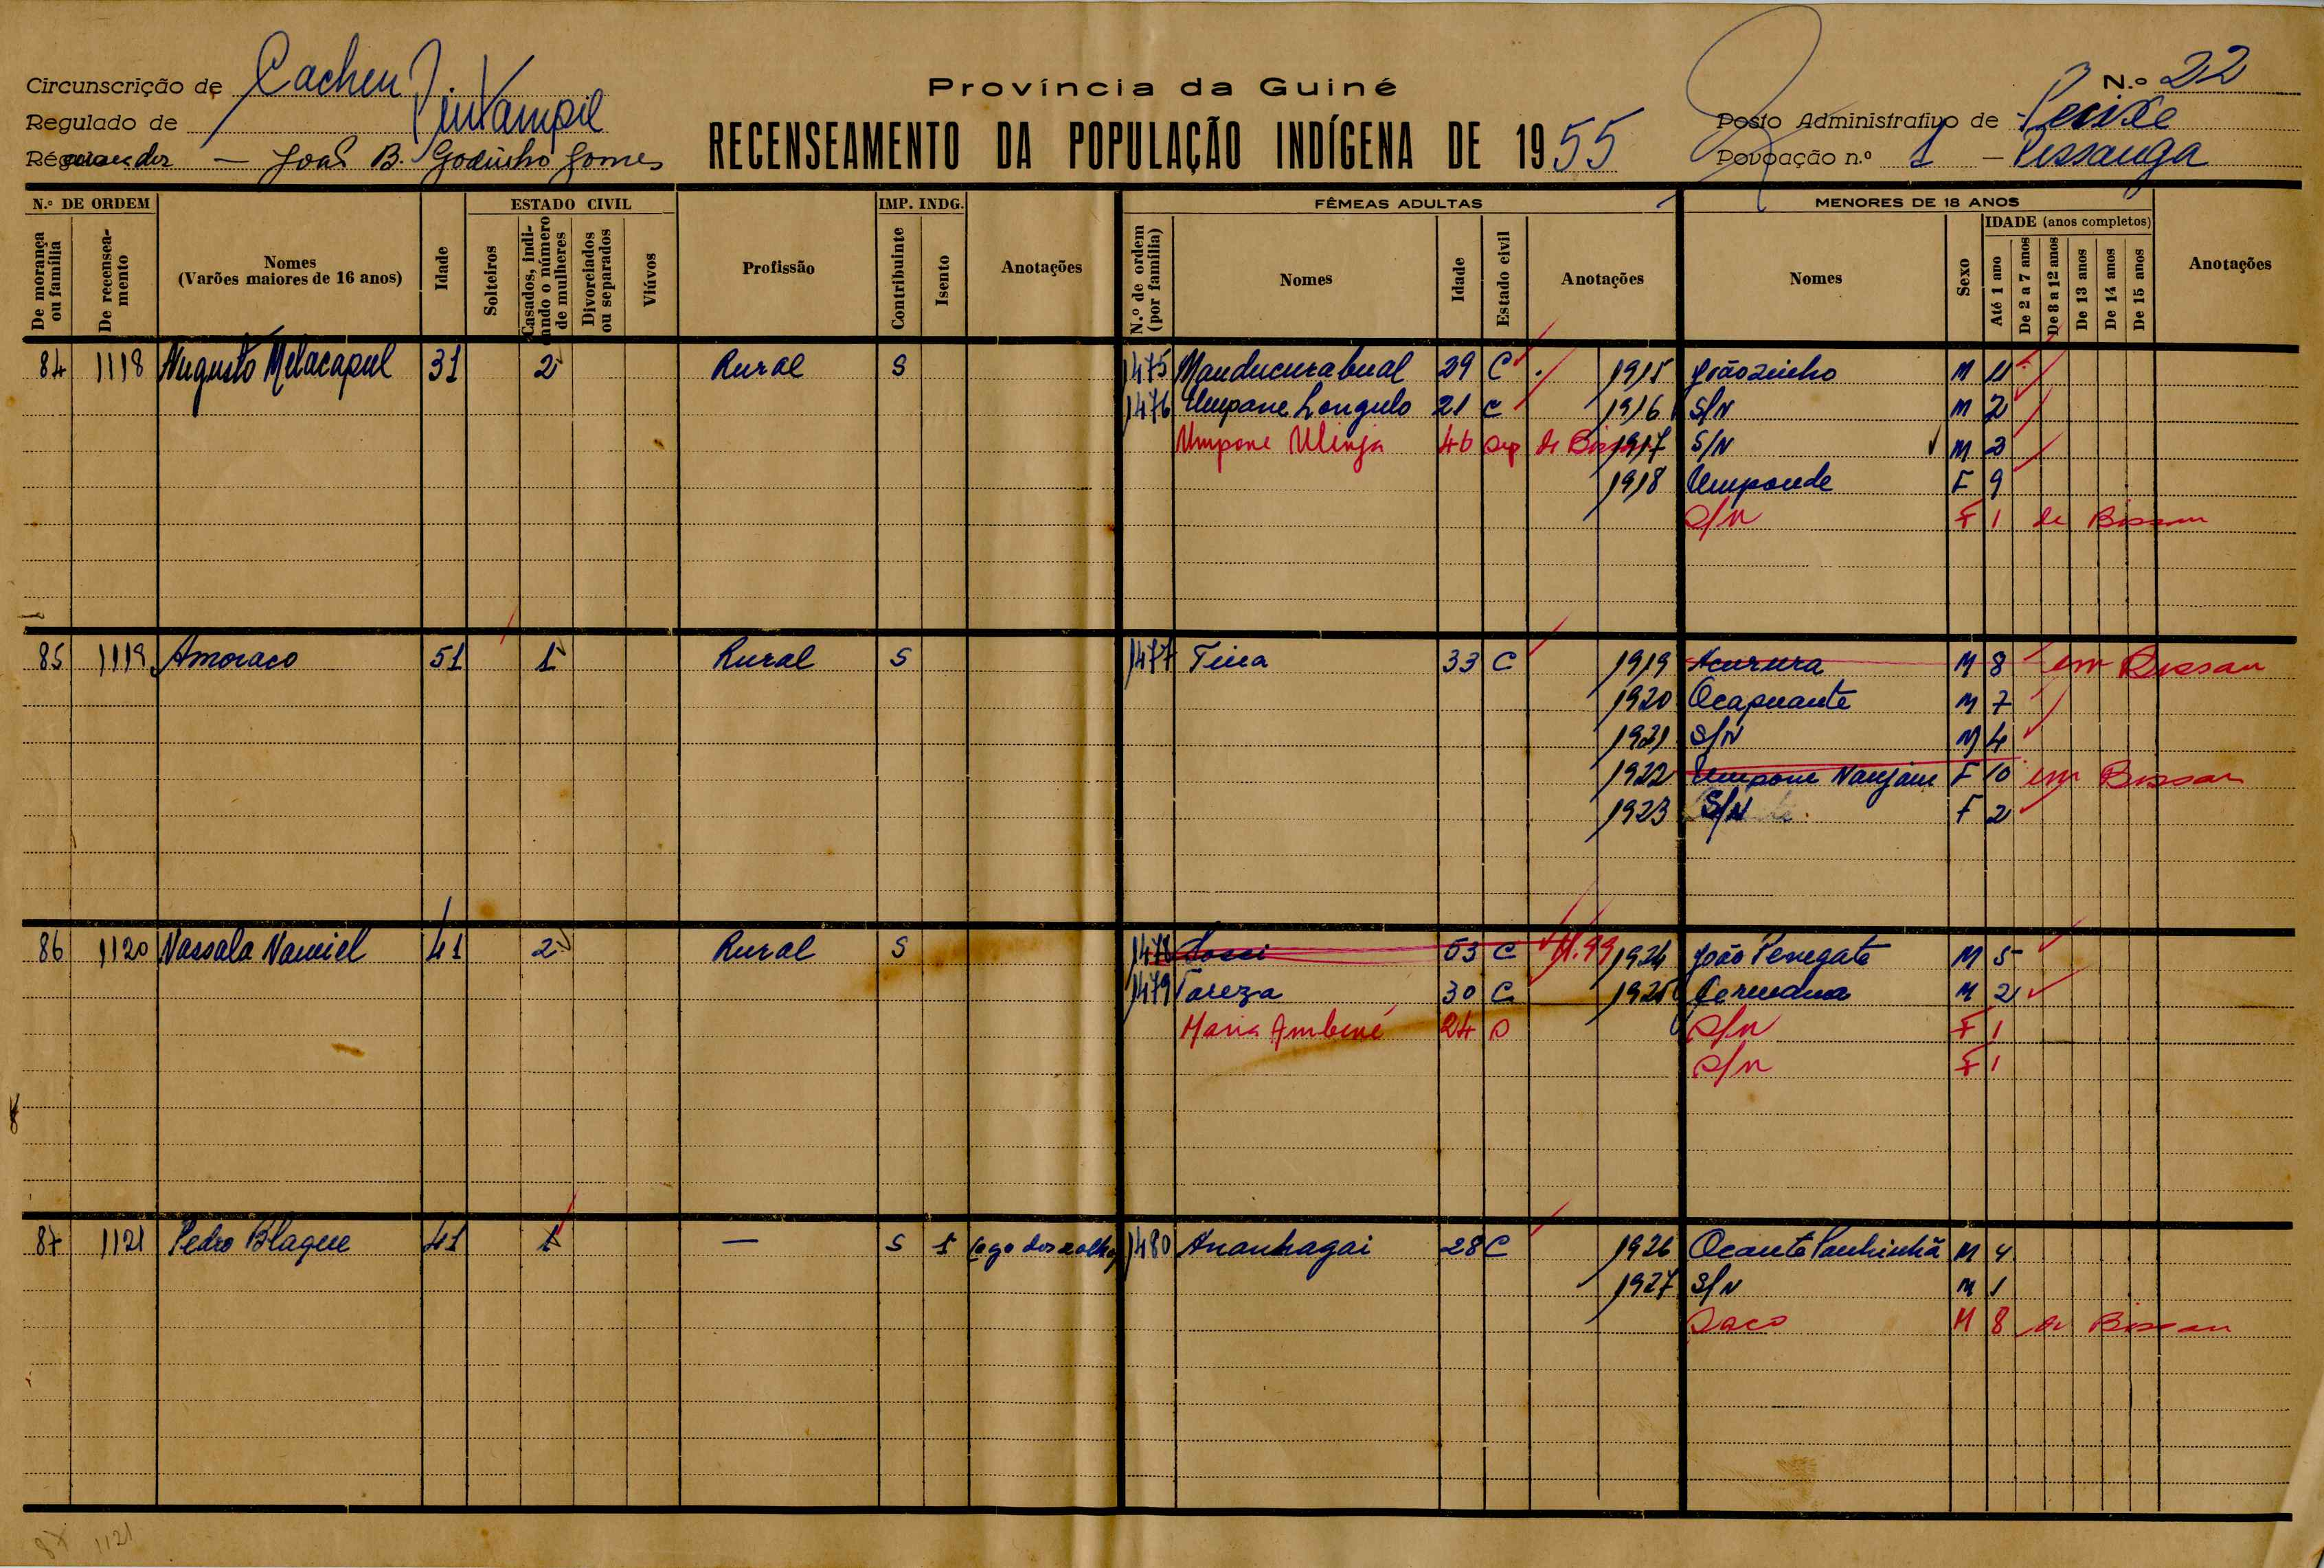 Circunscrição de Cacheu
Província da Guiné
N.º 22
Regulado de Pintampil
Posto Administrativo de Pecixe
João B. Godinho Gomes
RECENSEAMENTO DA POPULAÇÃO INDÍGENA DE 1955
Povoação n.º 1 -
N.º DE ORDEM
De morança ou família
De recenseamento
Nomes
(Varões maiores de 16 anos)
Idade
ESTADO CIVIL
Solteiros
Casados, indicando o número de mulheres
Divorciados ou separados
Viúvos
Profissão
IMP. INDG.
Contribuinte
Isento
Anotações
FÊMEAS ADULTAS
N.º de ordem (por família)
Nomes
Idade
Estado civil
Anotações
MENORES DE 18 ANOS
Nomes
Sexo
IDADE (anos completos)
Até 1 ano
De 2 a 7 anos
De 8 a 12 anos
De 13 anos
De 14 anos
De 15 anos
Anotações
84 1118 Augusto Melacapul 31 2 Rural S 1475 Manducurabual 29 C 1915 Joãozinho M 11
1476 Umpane Longulo 21 C 1916 S/N M 2
Umpone Ulinja 46 sep de 1917 S/N M 2
1918 Umponde F 9
S/N F 1 de Bissau
85 1119 Amoraco 51 1 Rural S 1477 Tina 33 C 1919 Acurura M 8 em Bissau
1920 Ocapuante M 7
1921 S/N M 4
1922 Umpone Nanjam F 10 em Bissau
1923 S/N F 2
86 1120 Nassala Namiel 41 2 Rural S 1478 53 C 1924 João Penegate M 5
1479 Tareza 30 C 1925 Germana M 2
Maria Ambené 24 S S/N F 1
S/N F 1
87 1121 Pedro Blague 41 1 — S 1 1480 Ananhagai 28 C 1926 Ocante Panhinhã M 4
1927 S/N M 1
Saco M 8 de Bissau
87 1121